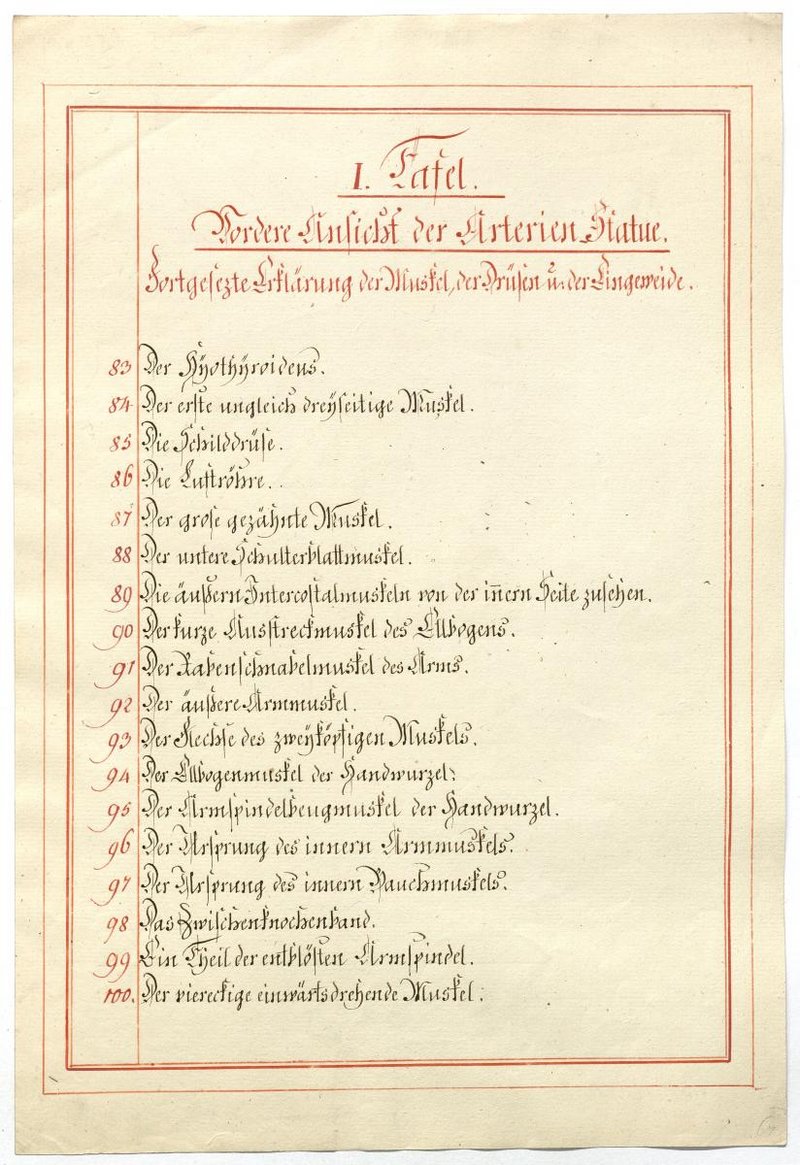 I. Tafel.
Vordere Ansicht der Arterien-Statue.
Fortgesezte Erklärung der Muskel, der Drüsen u. der Eingeweide.
83 Der Hÿothÿroideus.
84 Der erste ungleich dreÿseitige Muskel.
85 Die Schilddrüse.
86 Die Luftröhre.
87 Der grose gezähnte Muskel.
88 Der untere Schulterblattmuskel.
89 Die äußern Intercostalmuskeln von der iñern Seite zusehen.
90 Der kurze Ausstreckmuskel des Ellbogens.
91 Der Rabenschnabelmuskel des Arms.
92 Der äußere Armmuskel.
93 Der Flechse des zweÿköpfigen Muskels.
94 Der Ellbogenmuskel der Handwurzel.
95 Der Armspindelbeugmuskel der Handwurzel.
96 Der Ursprung des innern Armmuskels.
97 Der Ursprung des innern Bauchmuskels.
98 Das Zwischenknochenband.
99 Ein Theil der entblösten Armspindel.
100. Der viereckige einwärtsdrehende Muskel.